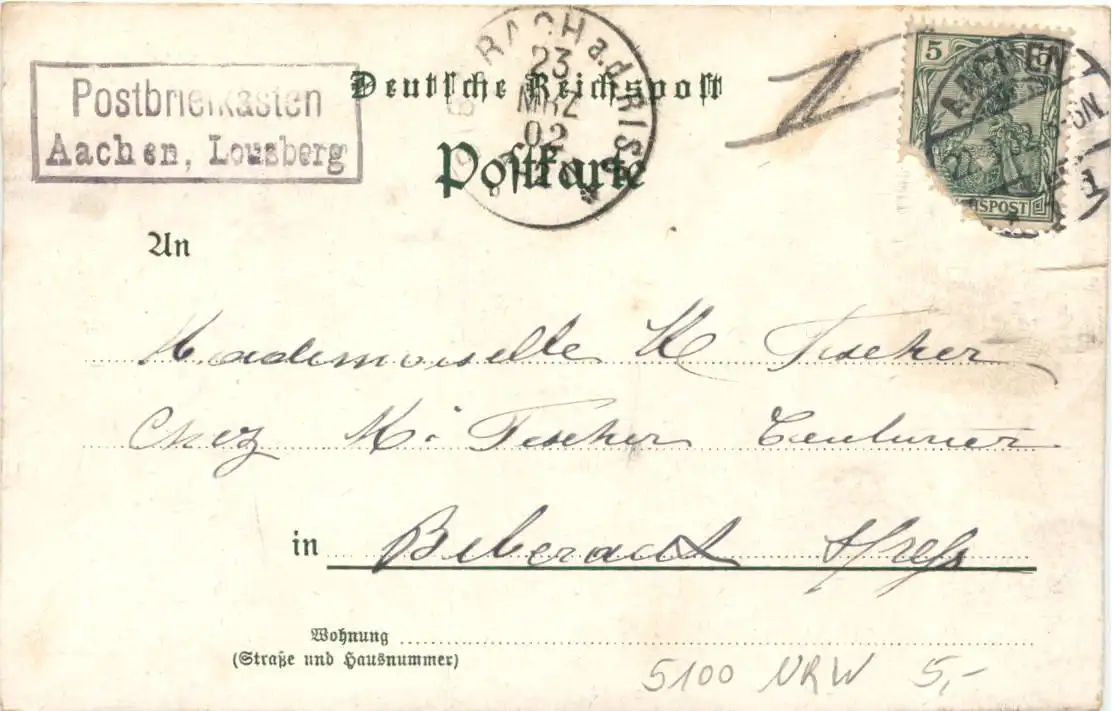 Postbriefkasten
Aachen, Lousberg
Deutsche Reichspost
Postkarte
BIBERACH a.d. RISS
23
MRZ
02
5 5
AACHEN
REICHSPOST
An
Mademoiselle K Fischer
Chez M. Fischer Ceinturier
in Biberach
Wohnung
(Straße und Hausnummer)
5100 NRW 5,-